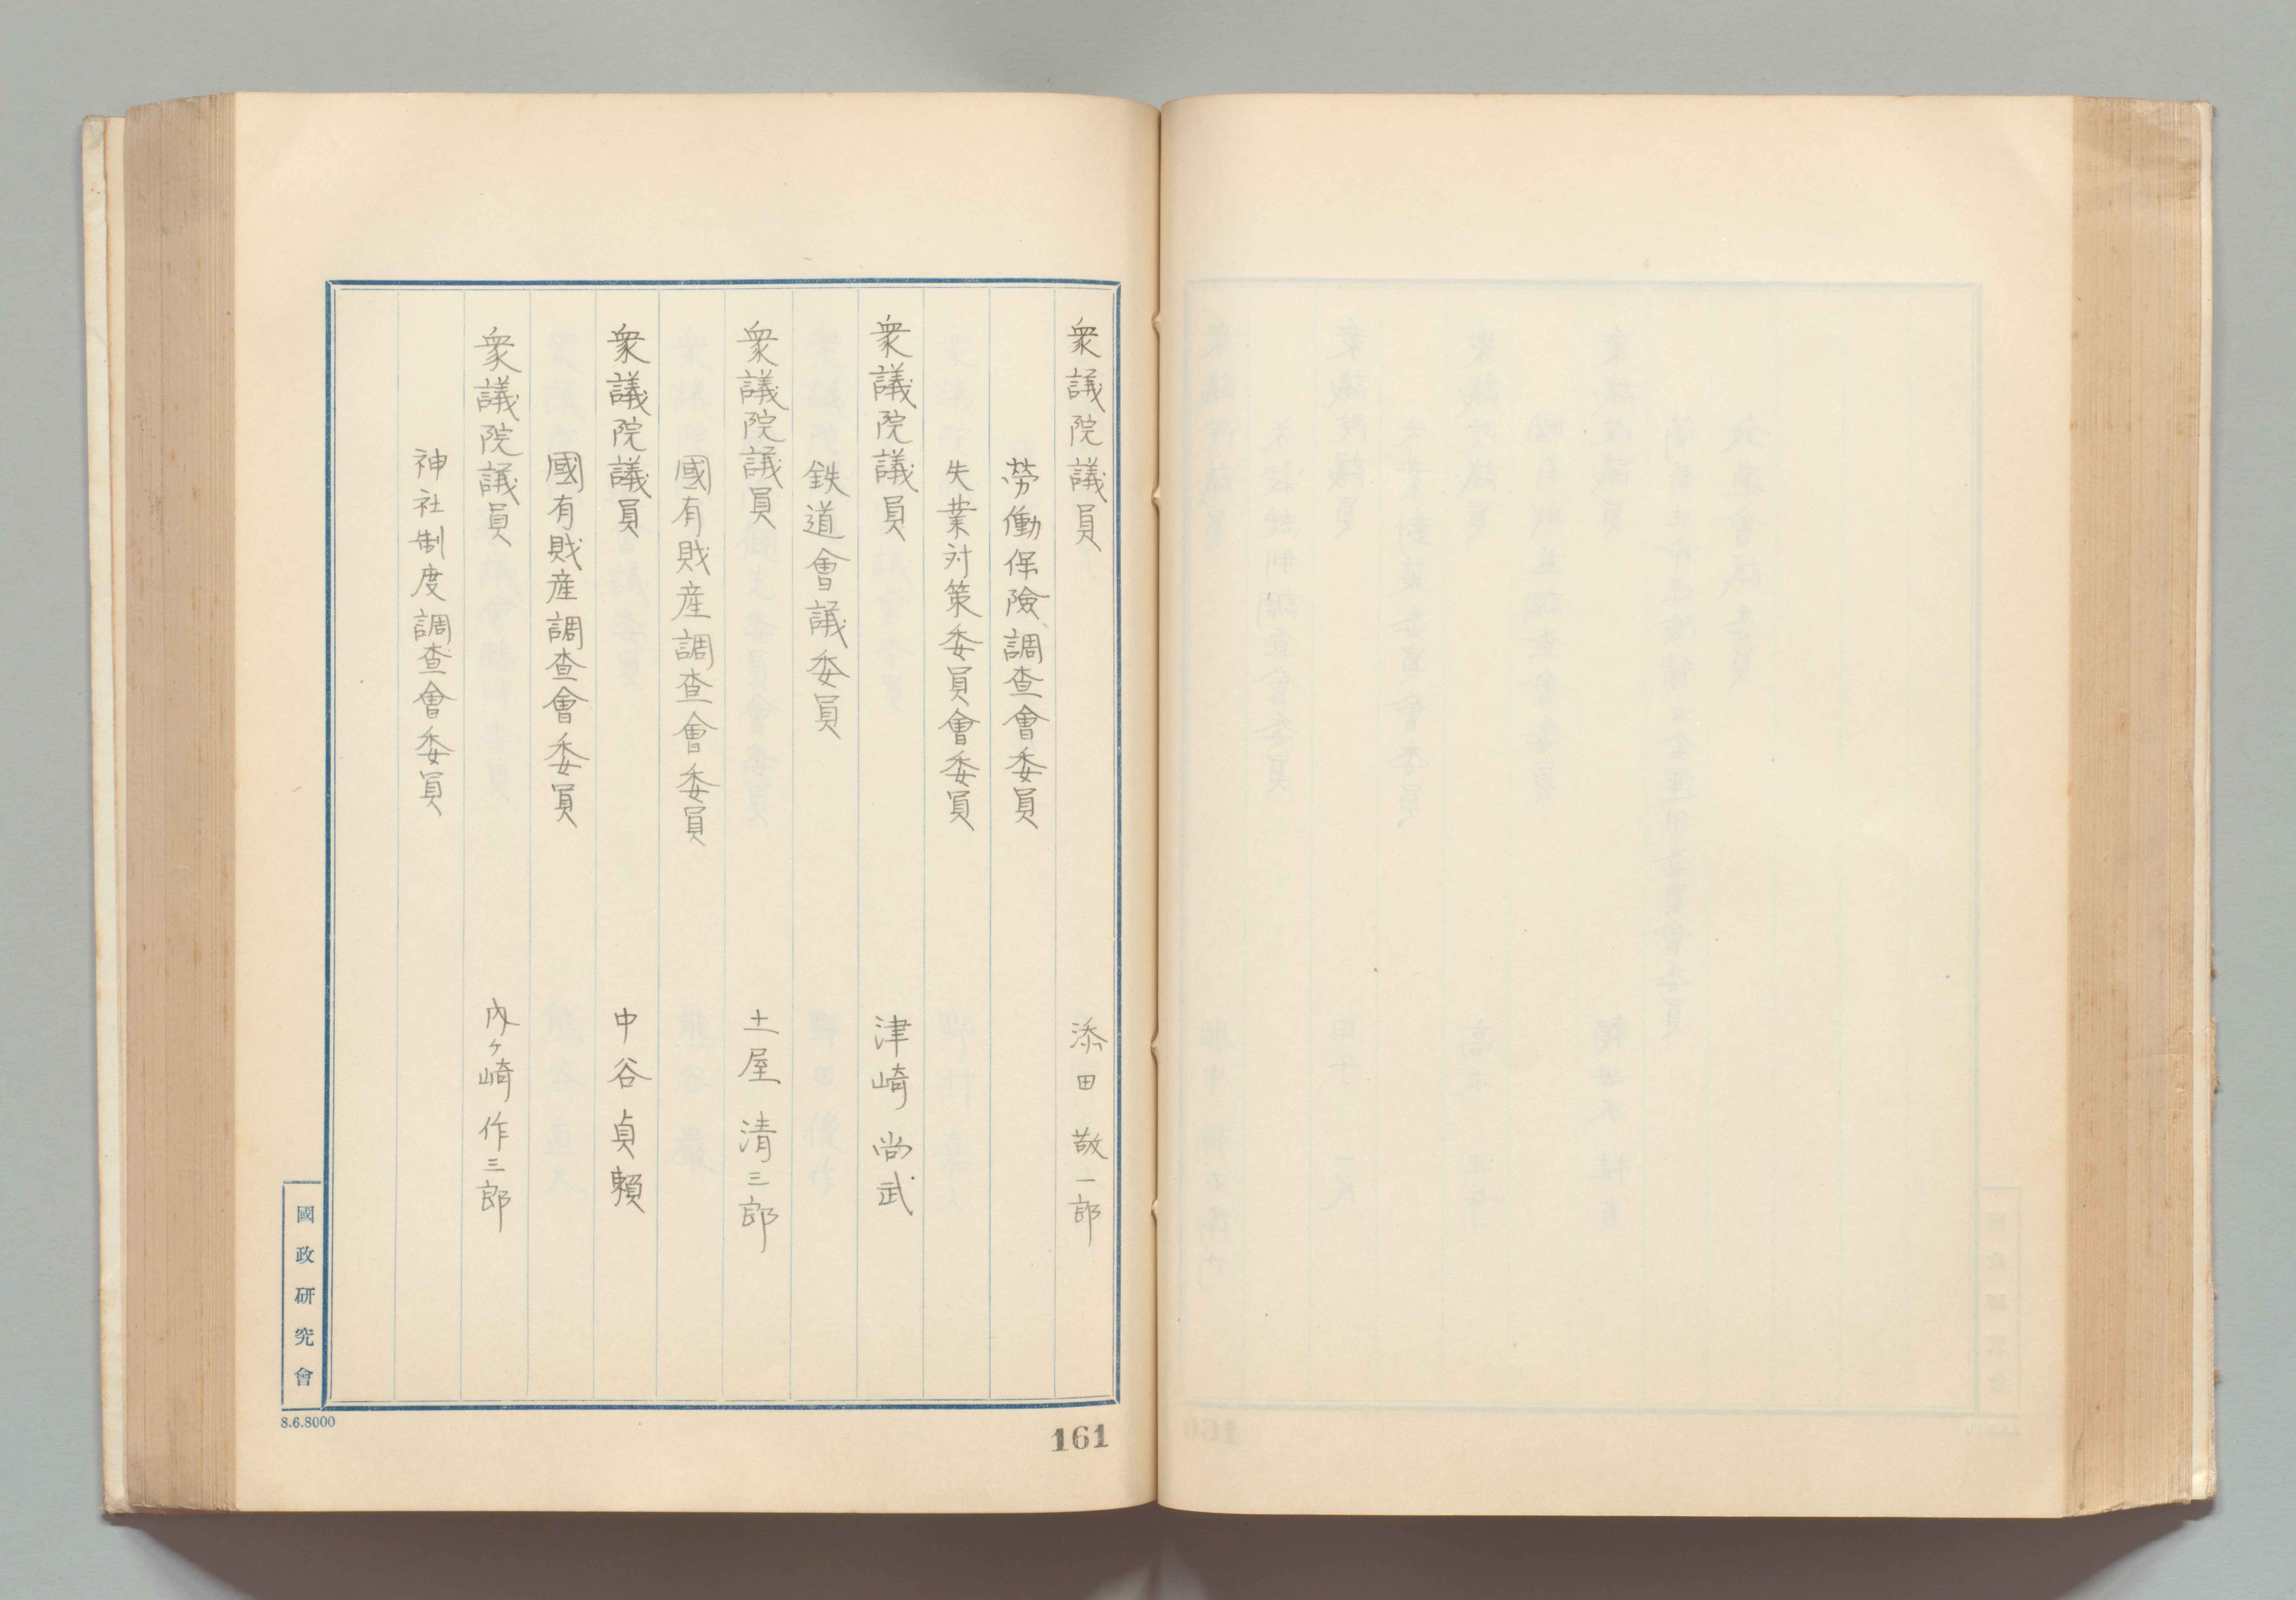 衆議院議員 添田敬一郎
勞働保險調査會委員
失業対策委員會委員
衆議院議員 津崎尚武
鉄道會議委員
衆議院議員 土屋清三郎
國有財産調査會委員
衆議院議員 中谷貞頼
國有財産調査會委員
衆議院議員 内ヶ崎作三郎
神社制度調査會委員
國政研究會
8.6.8000
161